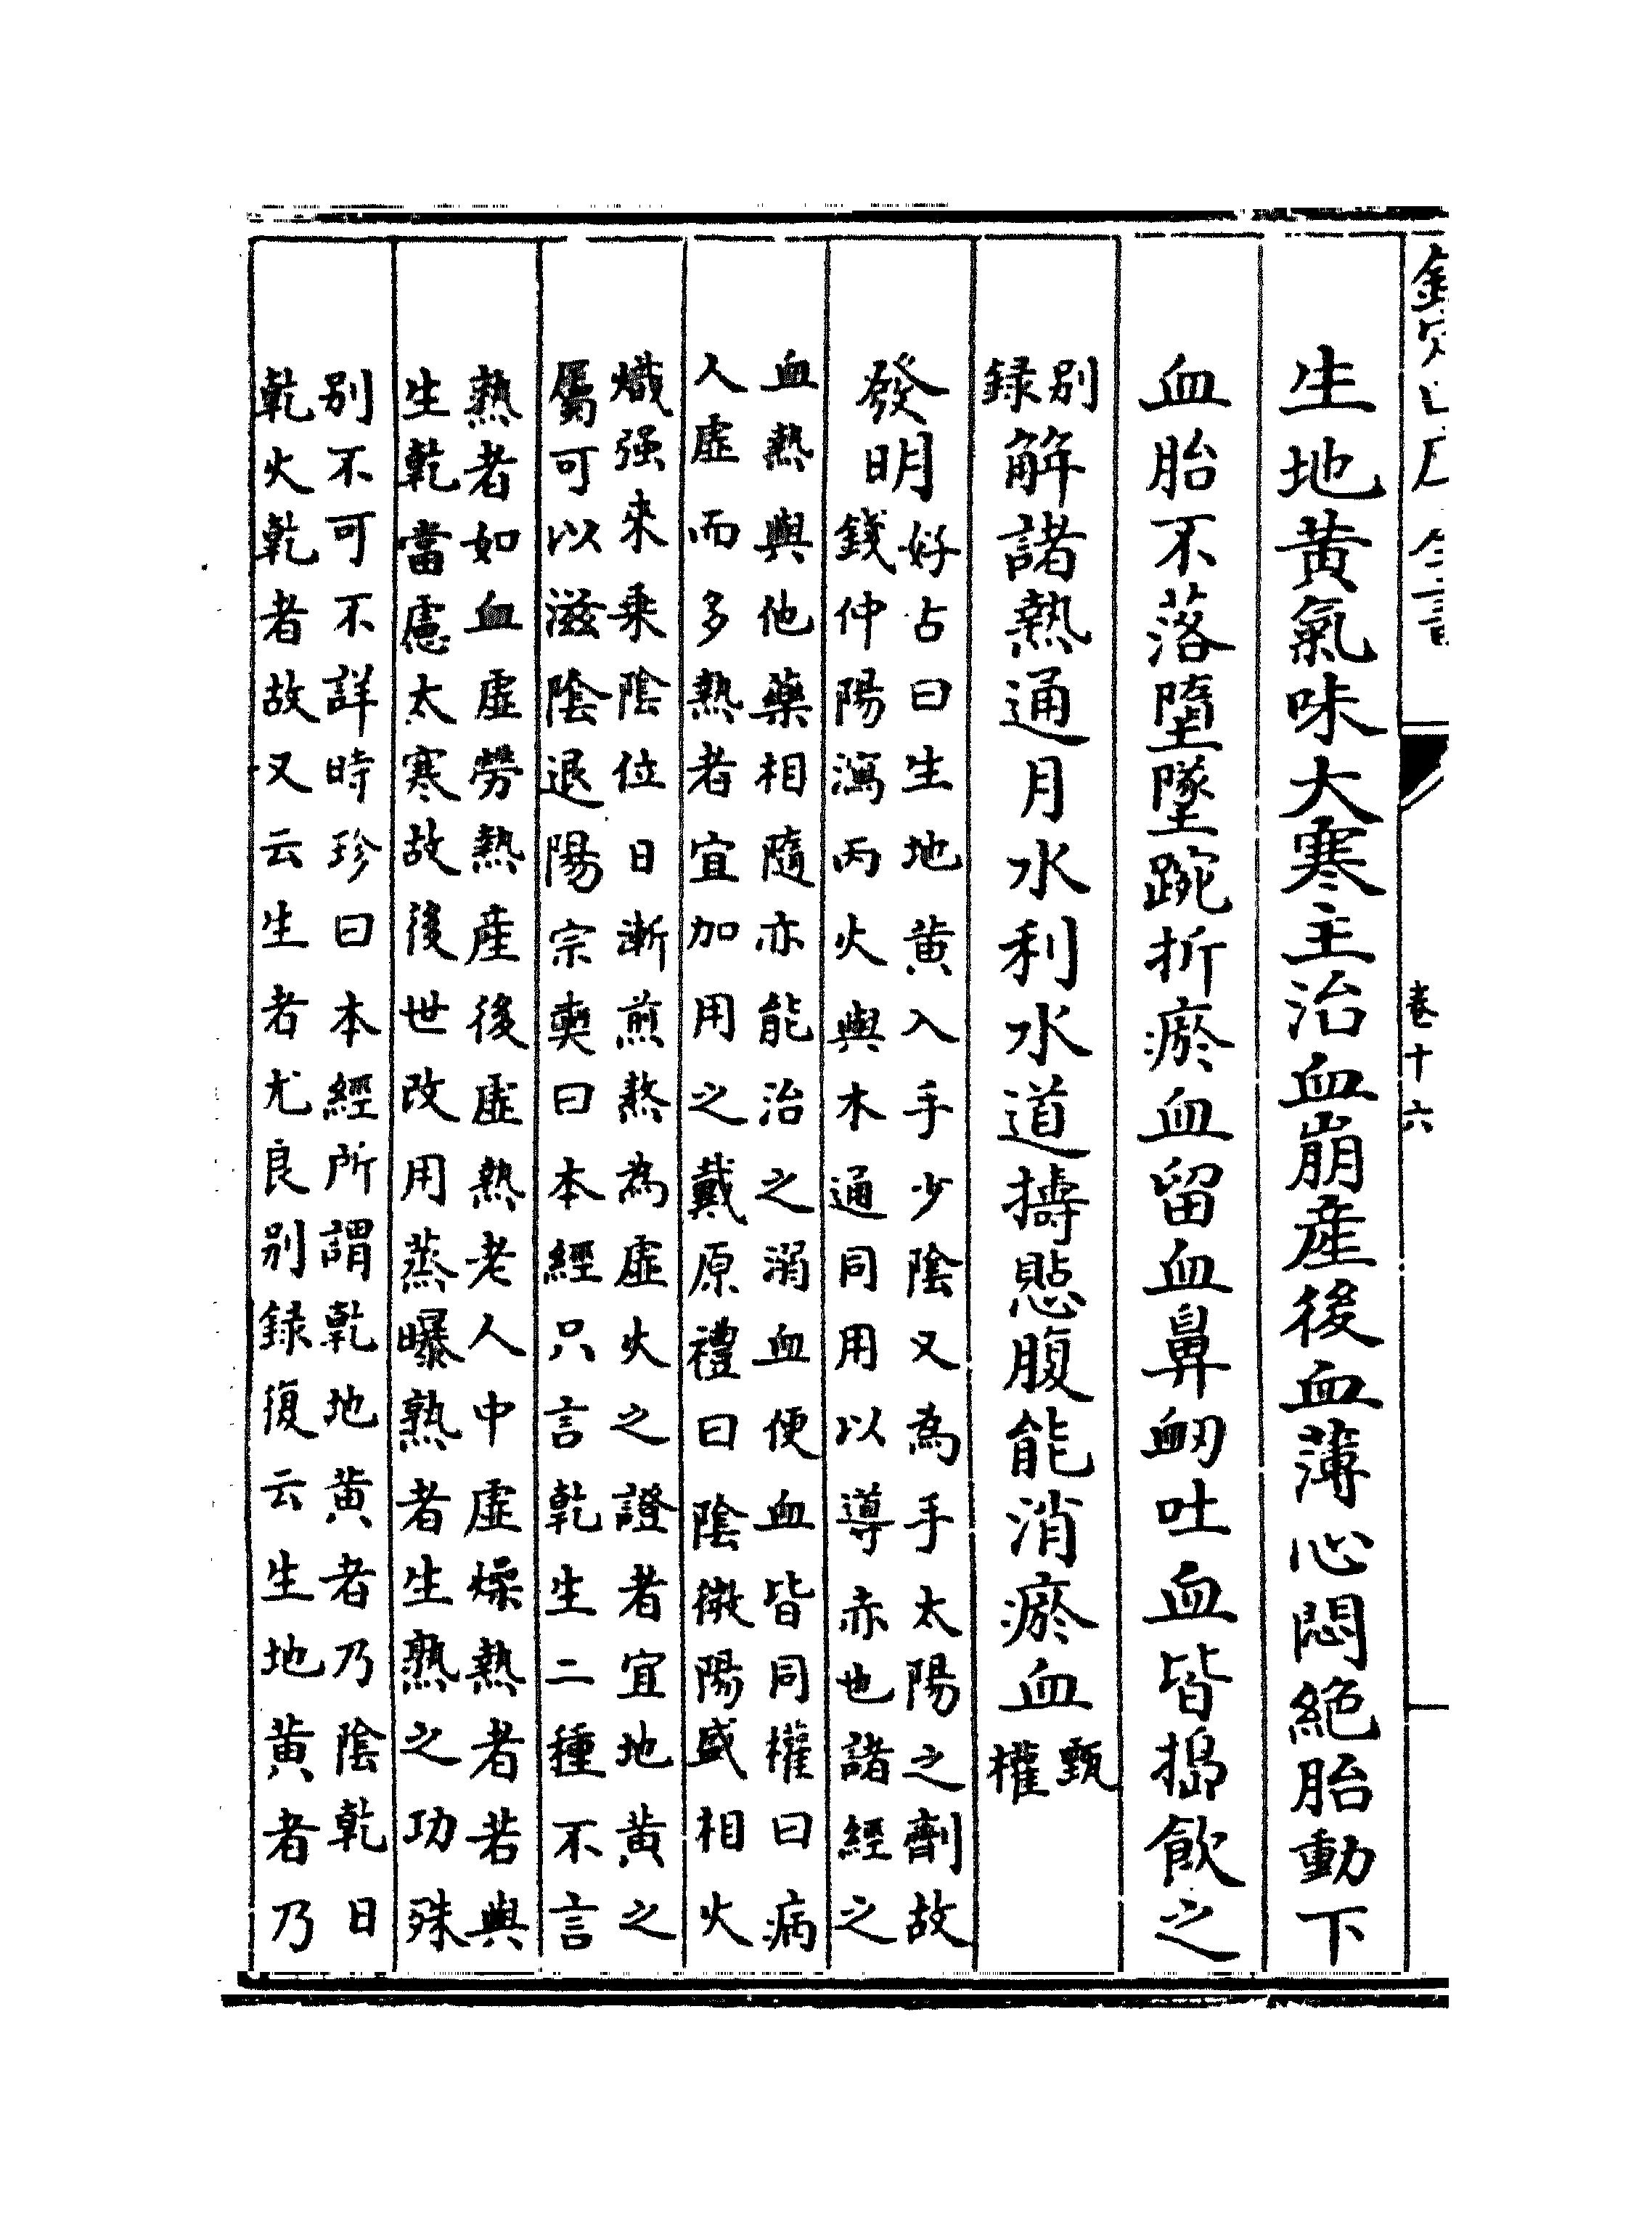 卷十六
生地黄氣味大寒主治血崩産後血薄心悶絶胎動下
血胎不落墮墜踠折瘀血留血鼻衂吐血皆搗飲之
别
録
解諸熱通月水利水道擣㥽腹能消瘀血
甄
權
發明
好占曰生地黄入手少陰又為手太陽之劑故
錢仲陽瀉丙火與木通同用以導赤也諸經之
血熱與他藥相隨亦能治之溺血便血皆同權曰病
人虚而多熱者宜加用之戴原禮曰陰微陽盛相火
熾强來乗陰位日漸煎熬為虚火之證者宜地黄之
屬可以滋陰退陽宗奭曰本經只言乾生二種不言
熟者如血虚勞熱産後虚熱老人中虚燥熱者若與
生乾當慮太寒故後世改用蒸曝熟者生熟之功殊
别不可不詳時珍曰本經所謂乾地黄者乃陰乾日
乾火乾者故又云生者尤良别録復云生地黄者乃